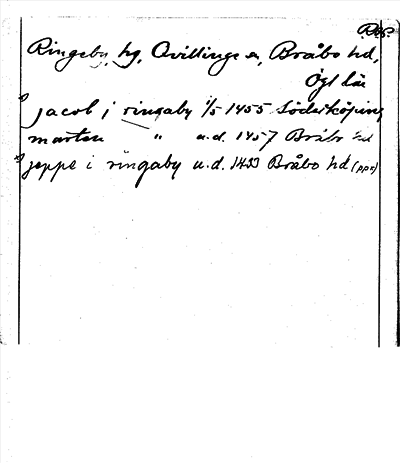 Ringeby, hg, Qvillinge sn, Bråbo hd,
Ögl län
jacob j ringaby 1/5 1455 Söderköping
marten " u.d. 1457 Bråbo hd
jeppe i ringaby u.d. 1433 Bråbo hd (ppr)